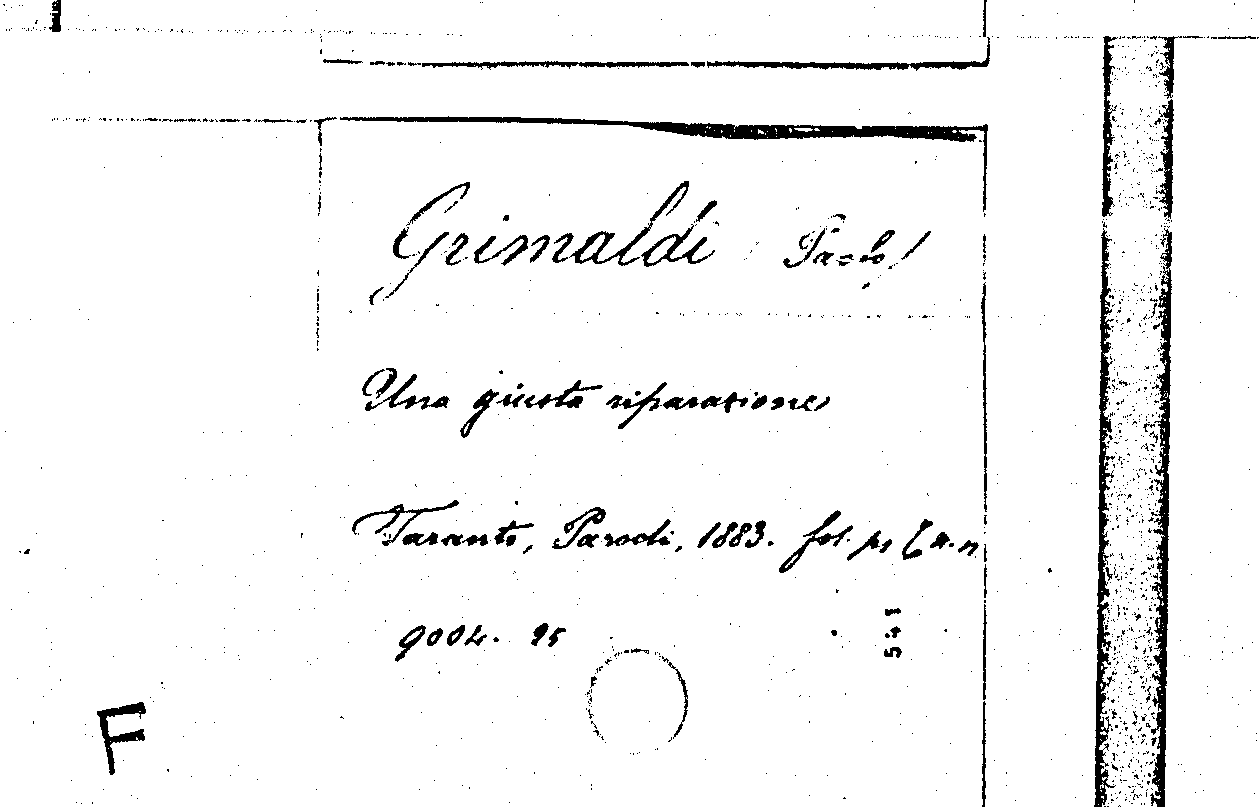 Grimaldi Paolo
Una giusta riparazione
Taranto, Parodi, 1883. fol. pp
9004. 25
541
F